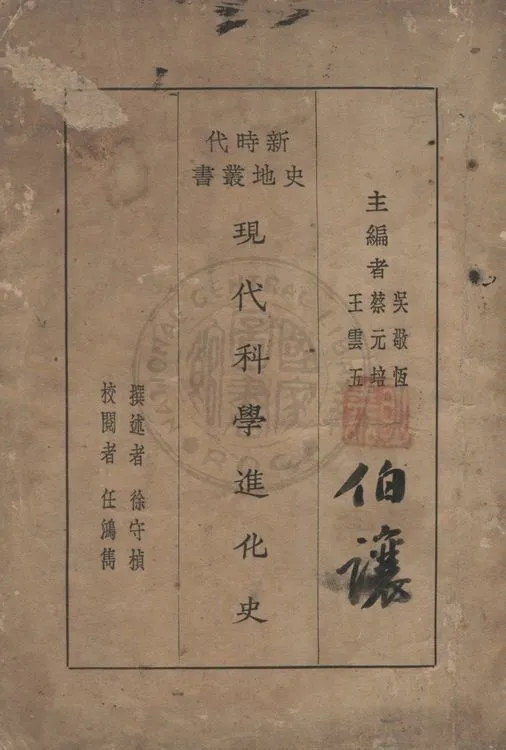 主編者
吳敬恆
蔡元培
王雲五
伯讓
新時代
史地叢書
現代科學進化史
撰述者 徐守楨
校閱者 任鴻雋